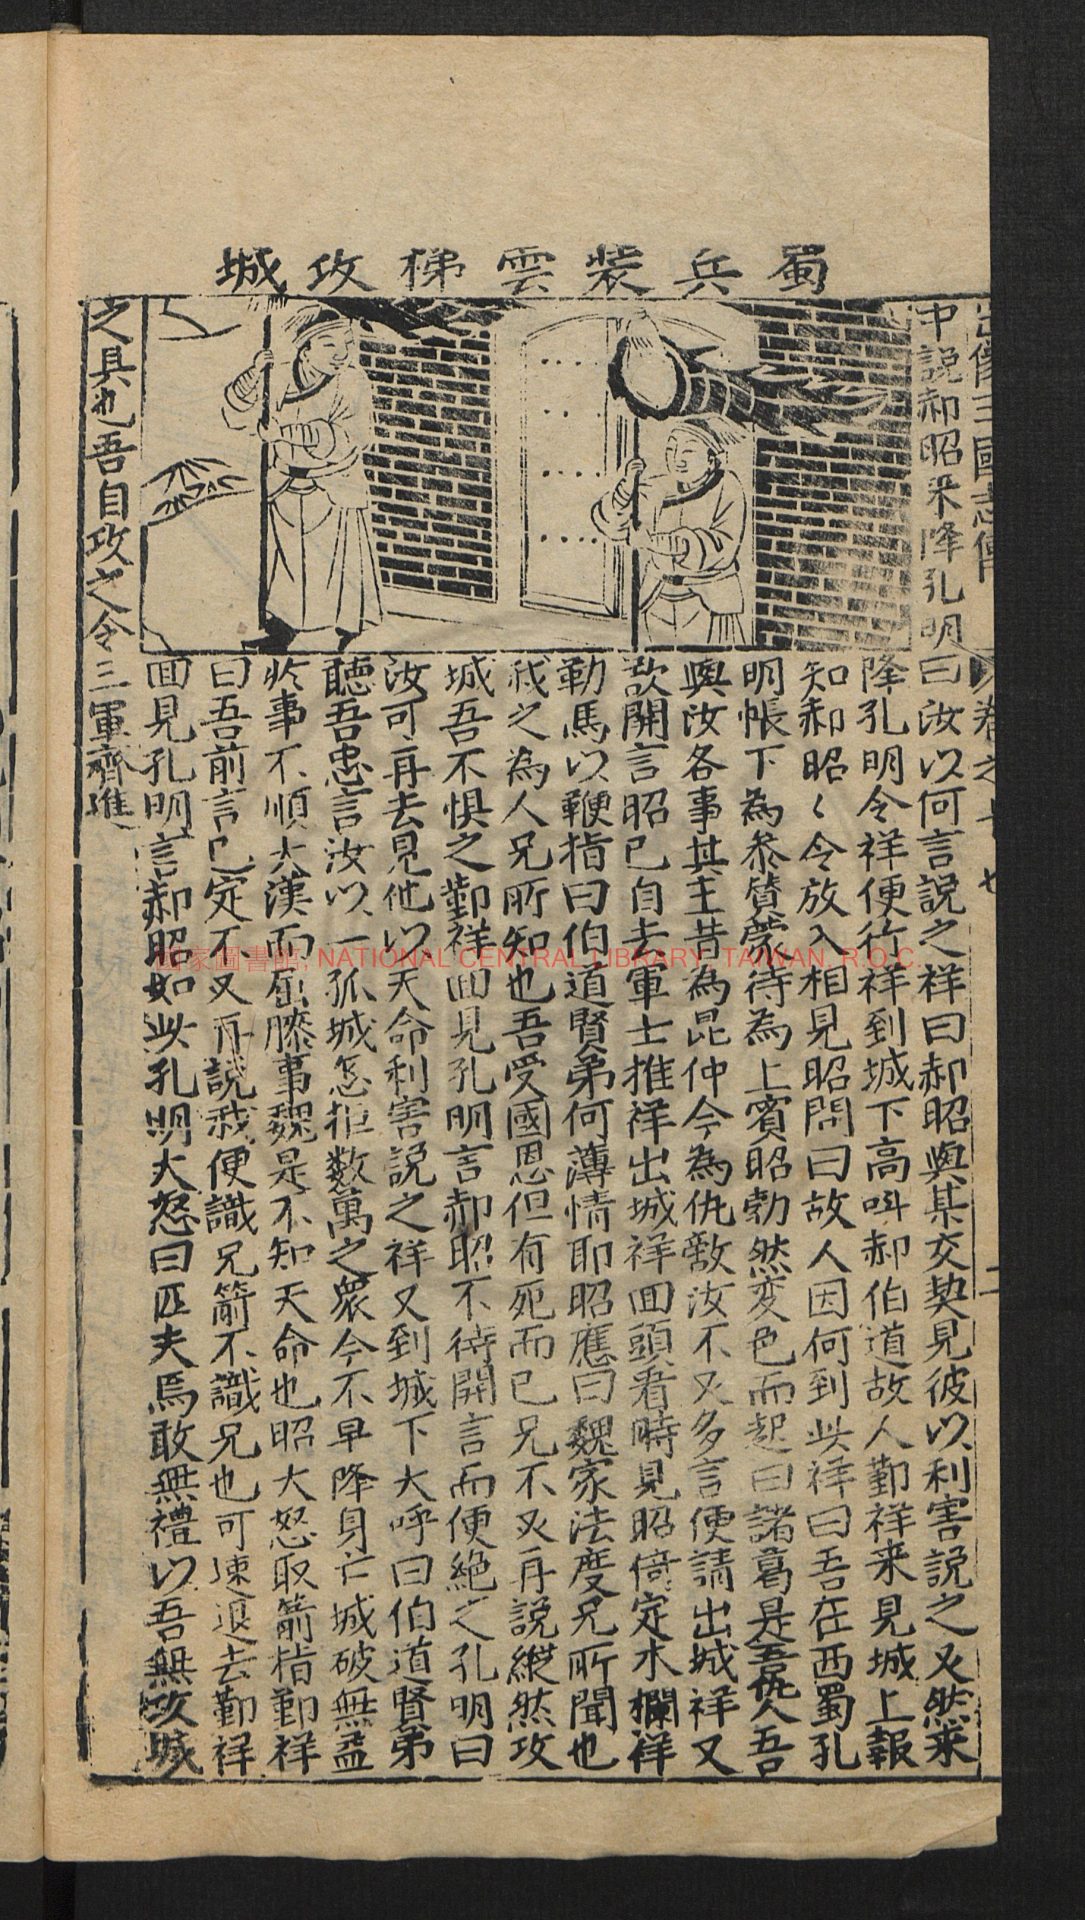 蜀兵裝雲梯攻城
三國志傳 卷之十七 二
中説郝昭来降孔明曰汝以何言説之祥曰郝昭與某交契見彼以利害説之必然来
降孔明令祥便行祥到城下高叫郝伯道故人鄞祥来見城上報
知郝昭〻令放入相見昭問曰故人因何到此祥曰吾在西蜀孔
明帳下為参賛蒙待為上賓昭勃然变色而起曰諸葛是吾仇人吾
與汝各事其主昔為昆仲今為仇敵汝不必多言便請出城祥又
欲開言昭已自去軍士推祥出城祥囬頭看時見昭倚定木欄祥
勒馬以鞭指曰伯道賢弟何薄情耶昭應曰魏家法度兄所聞也
我之為人兄所知也吾受國恩但有死而已兄不必再説縱然攻
城吾不惧之鄞祥囬見孔明言郝昭不待開言而便絶之孔明曰
汝可再去見他以天命利害説之祥又到城下大呼曰伯道賢弟
聽吾忠言汝以一孤城怎拒数萬之衆今不早降身亡城破無益
於事不順大漢而屈膝事魏是不知天命也昭大怒取箭指鄞祥
曰吾前言已定不必再説我便識兄箭不識兄也可速退去鄞祥
囬見孔明言郝昭如此孔明大怒曰匹夫焉敢無禮以吾無攻城
之具也吾自攻之令三軍齊進
國家圖書館, NATIONAL CENTRAL LIBRARY, TAIWAN, R.O.C.